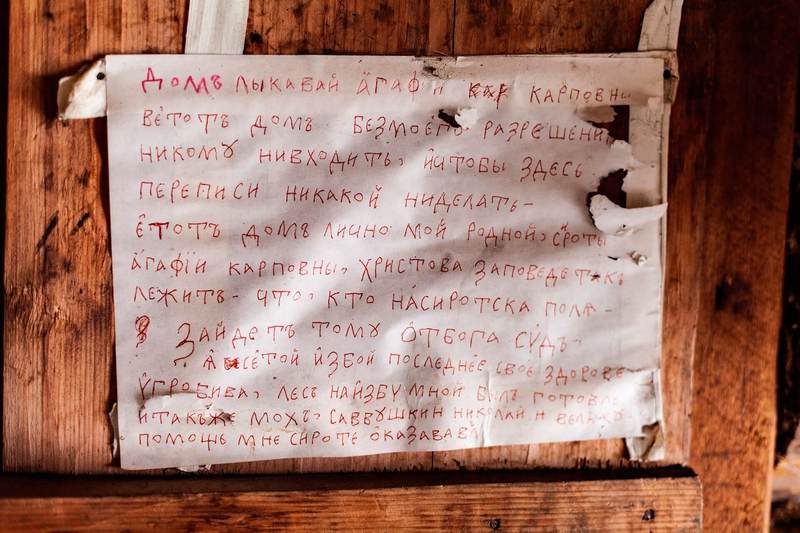 Домъ лыкавай а́гафїи карповны
вѐтотъ домъ безмоего разрешени
никому нивходить, и҆чтобы здесь
переписи никакой ниделать-
ѐтотъ домъ лично мой родной, сїроты
а́гафїи карповны, христова заповедетакъ
лежить- что, кто на́сиротска поля-
зайдетъ тому о́тбога су́дъ-
сѐтой избой последнее свое здоровье
у҆гробива, лесъ наи҆збу мной былъ готовлѣ
и҆такъже мохъ, саввушкин николай н
помощь мне сироте о҆казавав